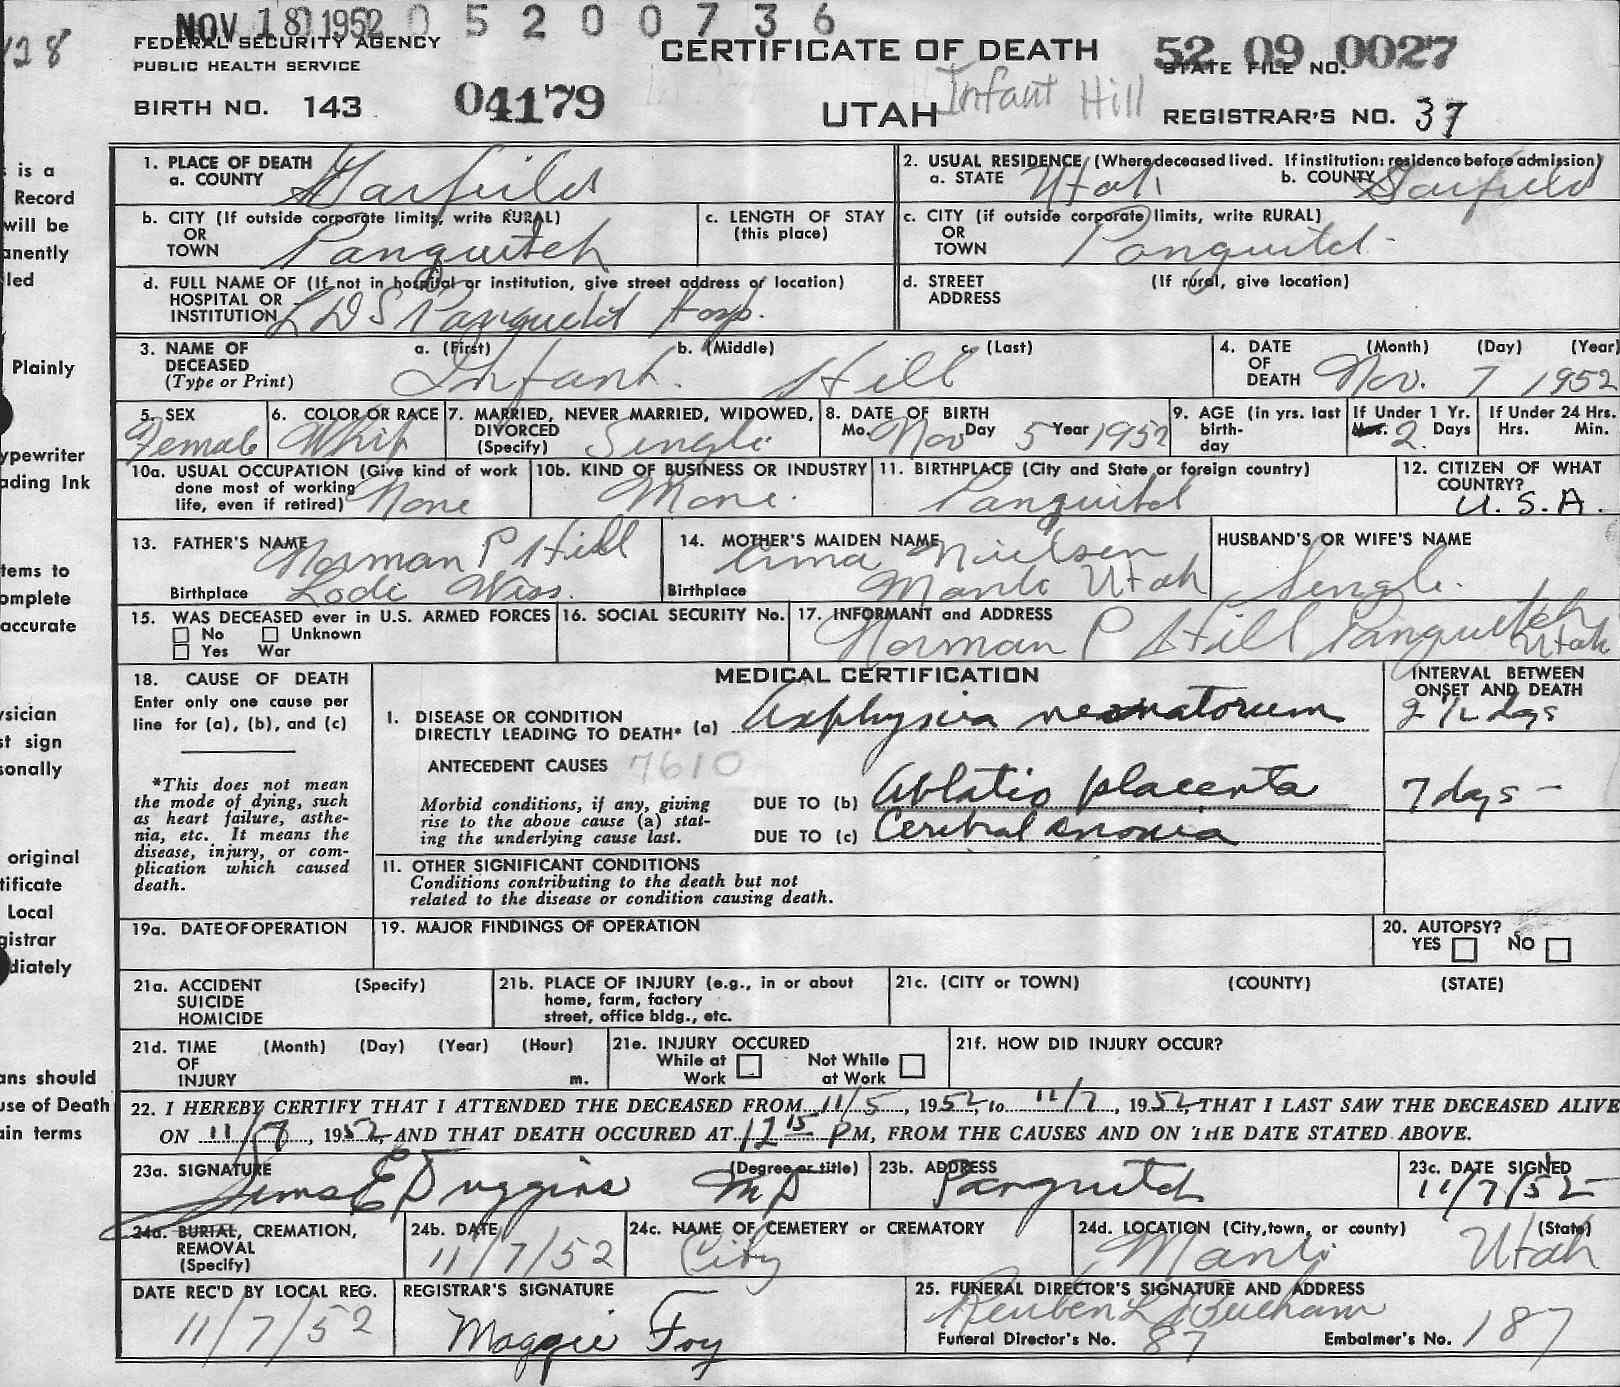 NOV 18 1952 0 5 2 0 0 7 3 6
128
FEDERAL SECURITY AGENCY
PUBLIC HEALTH SERVICE
CERTIFICATE OF DEATH
52 09 0027
STATE FILE NO.
BIRTH NO. 143 04179
UTAH
Infant Hill
REGISTRAR'S NO. 37
s is a
Record
will be
anently
led
Plainly
ypewriter
ading Ink
tems to
omplete
accurate
ysician
st sign
sonally
original
tificate
Local
gistrar
diately
ans should
use of Death
ain terms
1. PLACE OF DEATH
a. COUNTY Garfield
2. USUAL RESIDENCE (Where deceased lived. If institution: residence before admission)
a. STATE Utah b. COUNTY Garfield
b. CITY (If outside corporate limits, write RURAL)
OR
TOWN Panguitch
c. LENGTH OF STAY
(this place)
c. CITY (if outside corporate limits, write RURAL)
OR
TOWN Panguitch
d. FULL NAME OF (If not in hospital or institution, give street address or location)
HOSPITAL OR
INSTITUTION LDS Panguitch Hosp.
d. STREET
ADDRESS
(If rural, give location)
3. NAME OF
DECEASED
(Type or Print)
a. (First) b. (Middle) c. (Last)
Infant. Hill
4. DATE
OF
DEATH
(Month) (Day) (Year)
Nov. 7 1952
5. SEX
Female
6. COLOR OR RACE
White
7. MARRIED, NEVER MARRIED, WIDOWED,
DIVORCED
(Specify) Single
8. DATE OF BIRTH
Mo. Nov Day 5 Year 1952
9. AGE (in yrs. last
birth-
day
If Under 1 Yr.
Mos. 2 Days
If Under 24 Hrs.
Hrs. Min.
10a. USUAL OCCUPATION (Give kind of work
done most of working
life, even if retired) None
10b. KIND OF BUSINESS OR INDUSTRY
None.
11. BIRTHPLACE (City and State or foreign country)
Panguitch
12. CITIZEN OF WHAT
COUNTRY?
U.S.A.
13. FATHER'S NAME Norman P Hill
Birthplace Lodi Wiss.
14. MOTHER'S MAIDEN NAME Arma Nielsen
Birthplace Manti Utah
HUSBAND'S OR WIFE'S NAME
Single.
15. WAS DECEASED ever in U.S. ARMED FORCES
No Unknown
Yes War
16. SOCIAL SECURITY No.
17. INFORMANT and ADDRESS
Norman P Hill Panguitch
Utah
18. CAUSE OF DEATH
Enter only one cause per
line for (a), (b), and (c)
*This does not mean
the mode of dying, such
as heart failure, asthe-
nia, etc. It means the
disease, injury, or com-
plication which caused
death.
MEDICAL CERTIFICATION
INTERVAL BETWEEN
ONSET AND DEATH
I. DISEASE OR CONDITION
DIRECTLY LEADING TO DEATH* (a) Asphyxia neonatorum 2 1/2 days
ANTECEDENT CAUSES 7610
Morbid conditions, if any, giving
rise to the above cause (a) stat-
ing the underlying cause last.
DUE TO (b) Ablatio placenta 7 days -
DUE TO (c) Cerebral anoxia
II. OTHER SIGNIFICANT CONDITIONS
Conditions contributing to the death but not
related to the disease or condition causing death.
19a. DATE OF OPERATION
19. MAJOR FINDINGS OF OPERATION
20. AUTOPSY?
YES NO
21a. ACCIDENT
SUICIDE
HOMICIDE
(Specify)
21b. PLACE OF INJURY (e.g., in or about
home, farm, factory
street, office bldg., etc.
21c. (CITY or TOWN) (COUNTY) (STATE)
21d. TIME
OF
INJURY
(Month) (Day) (Year) (Hour)
m.
21e. INJURY OCCURED
While at
Work
Not While
at Work
21f. HOW DID INJURY OCCUR?
22. I HEREBY CERTIFY THAT I ATTENDED THE DECEASED FROM 11/5, 1952, to 11/7, 1952, THAT I LAST SAW THE DECEASED ALIVE
ON 11/7, 1952, AND THAT DEATH OCCURED AT 12 15 P M, FROM THE CAUSES AND ON THE DATE STATED ABOVE.
23a. SIGNATURE (Degree or title)
Sims E Duggins MD
23b. ADDRESS
Panguitch
23c. DATE SIGNED
11/7/52
24a. BURIAL, CREMATION,
REMOVAL
(Specify)
24b. DATE
11/7/52
24c. NAME OF CEMETERY or CREMATORY
City
24d. LOCATION (City, town, or county) (State)
Manti Utah
DATE REC'D BY LOCAL REG.
11/7/52
REGISTRAR'S SIGNATURE
Maggie Foy
25. FUNERAL DIRECTOR'S SIGNATURE AND ADDRESS
Reuben L
Funeral Director's No. 87 Embalmer's No. 187